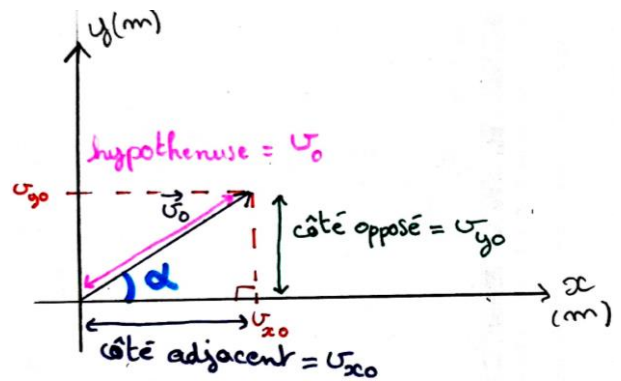 y(m)
hypothenuse = v₀
v_y0
v⃗₀
côté opposé = v_y0
α
x
(m)
v_x0
côté adjacent = v_x0